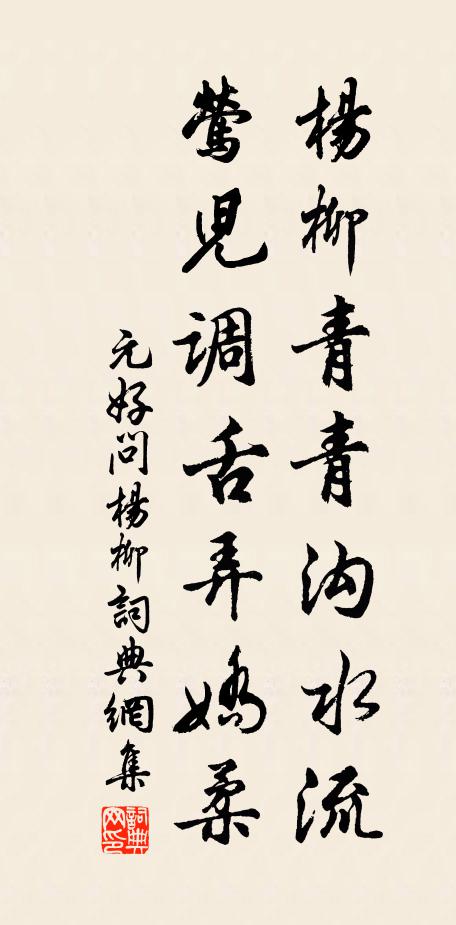 楊柳青青沟水流
鶯児調舌弄嬌柔
元好问楊柳詞典網集
詞典网印